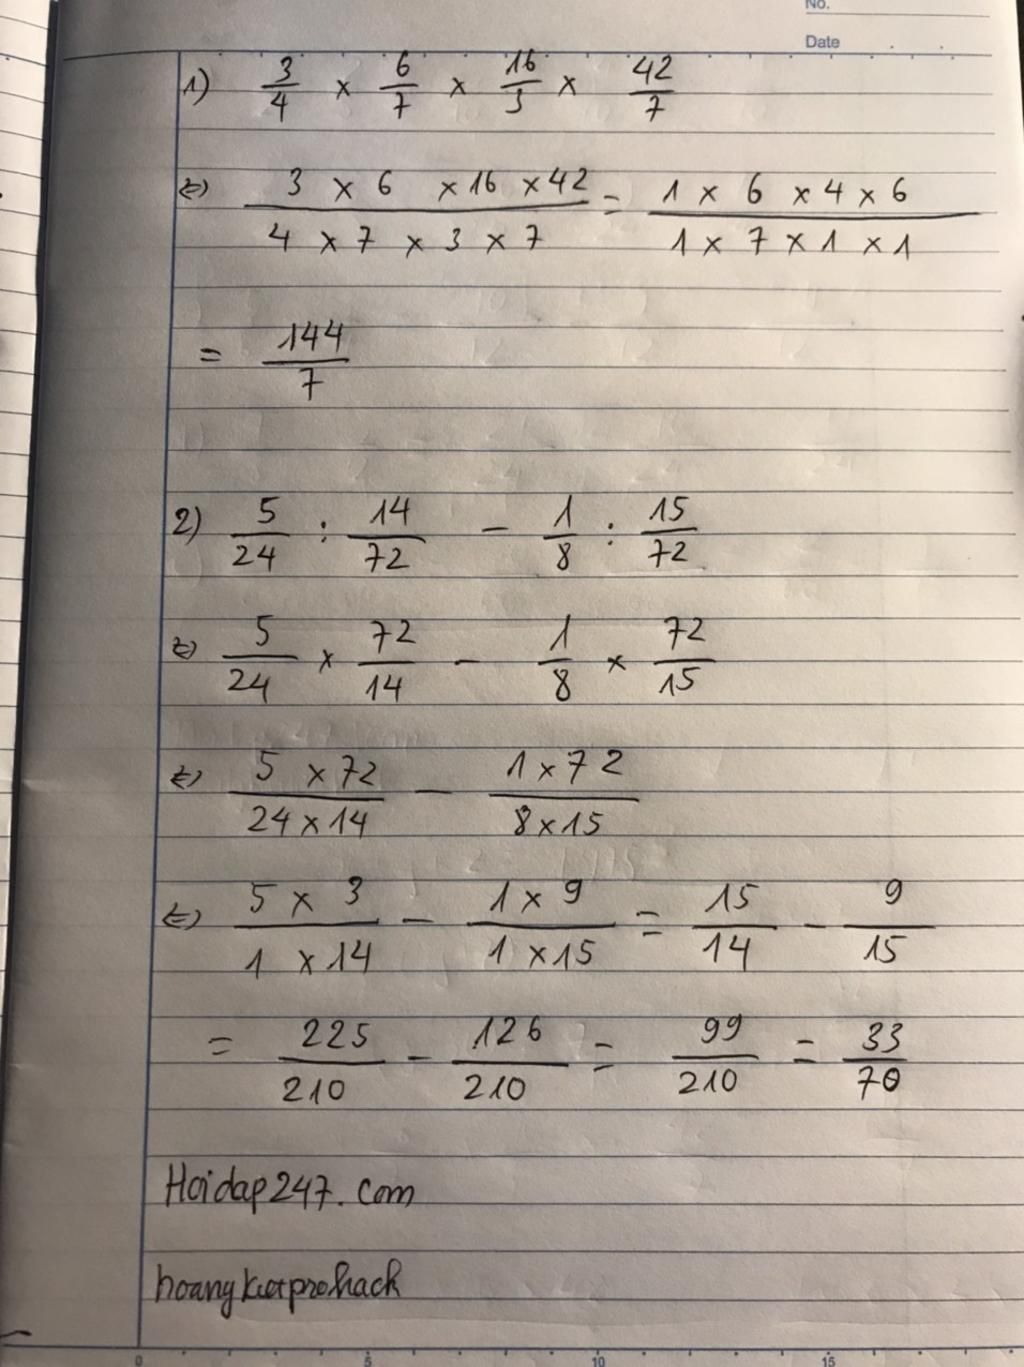 No.
Date
1) 3/4 × 6/7 × 16/3 × 42/7
(=) (3 × 6 × 16 × 42)/(4 × 7 × 3 × 7) = (1 × 6 × 4 × 6)/(1 × 7 × 1 × 1)
= 144/7
2) 5/24 : 14/72 - 1/8 : 15/72
(=) 5/24 × 72/14 - 1/8 × 72/15
(=) (5 × 72)/(24 × 14) - (1 × 72)/(8 × 15)
(=) (5 × 3)/(1 × 14) - (1 × 9)/(1 × 15) = 15/14 - 9/15
= 225/210 - 126/210 = 99/210 = 33/70
Hoidap247.com
hoangkietprohack
0 5 10 15